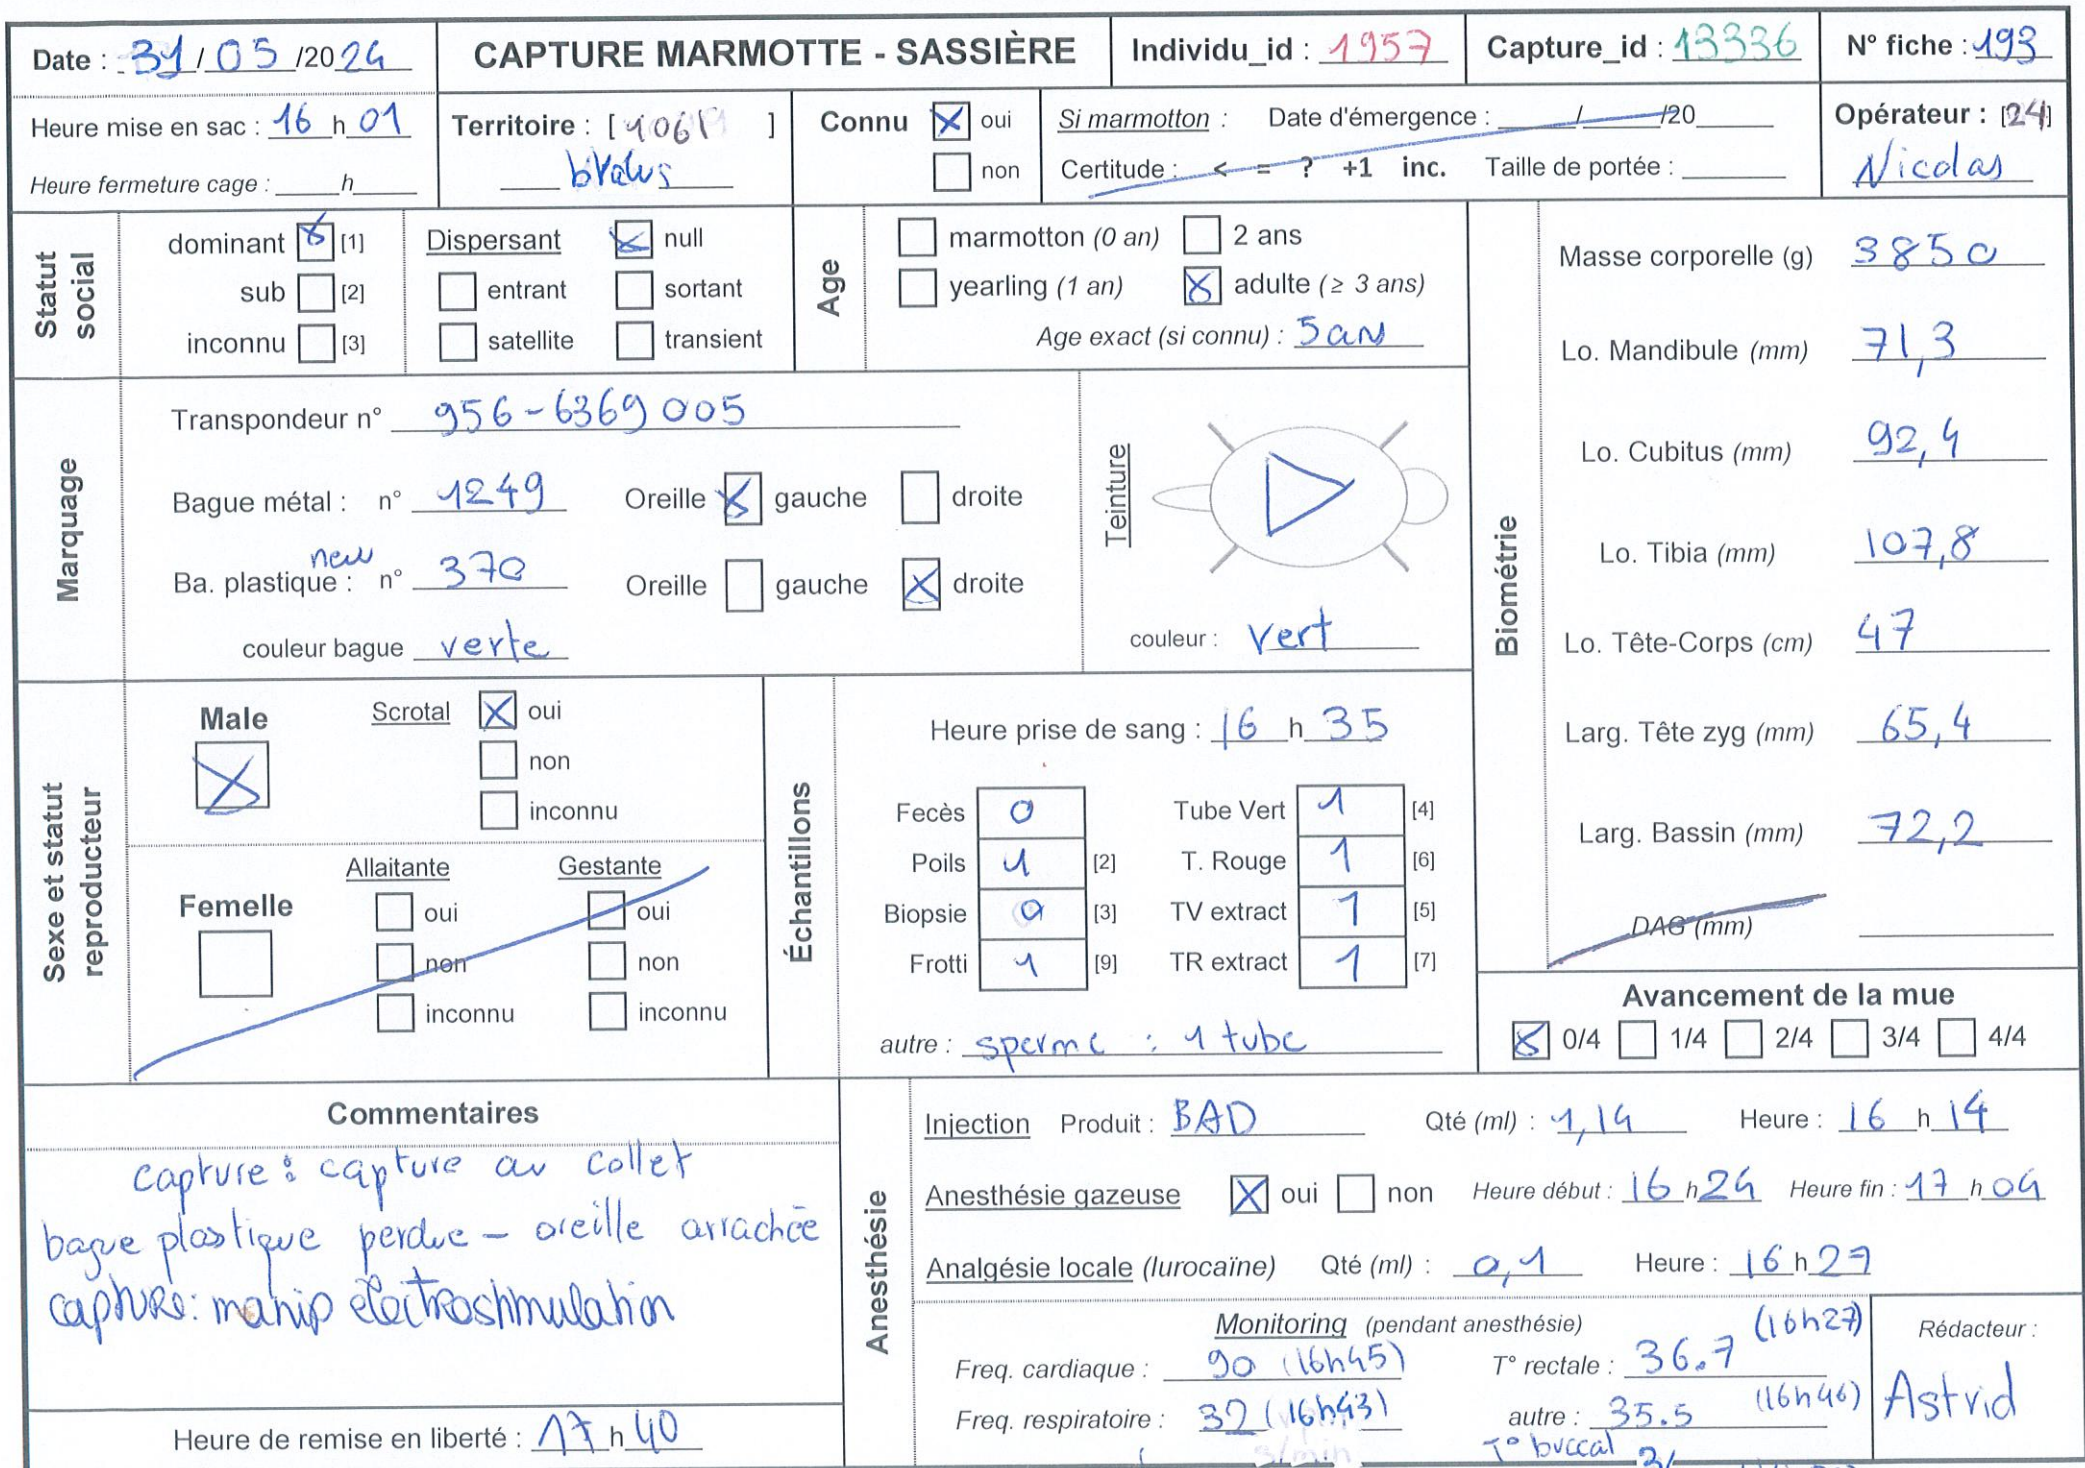 Date : 31/05/2024
CAPTURE MARMOTTE - SASSIÈRE
Individu_id : 1957
Capture_id : 13336
N° fiche : 193
Heure mise en sac : 16 h 01
Heure fermeture cage : ____h____
Territoire : [ 1061 ]
Connu oui
non
Si marmotton : Date d'émergence : ____/____/20____
Certitude : < = ? +1 inc. Taille de portée : ____
Opérateur : [24]
Nicolas
Statut social
dominant [1]
sub [2]
inconnu [3]
Dispersant null
entrant sortant
satellite transient
Age
marmotton (0 an) 2 ans
yearling (1 an) adulte (≥ 3 ans)
Age exact (si connu) : 5 ans
Marquage
Transpondeur n° 956-6369005
Bague métal : n° 1249 Oreille gauche droite
new
Ba. plastique : n° 370 Oreille gauche droite
couleur bague verte
Teinture
couleur : vert
Biométrie
Masse corporelle (g) 3850
Lo. Mandibule (mm) 71,3
Lo. Cubitus (mm) 92,4
Lo. Tibia (mm) 107,8
Lo. Tête-Corps (cm) 47
Larg. Tête zyg (mm) 65,4
Larg. Bassin (mm) 72,2
DAG (mm)
Sexe et statut reproducteur
Male
Scrotal oui
non
inconnu
Femelle
Allaitante Gestante
oui oui
non non
inconnu inconnu
Échantillons
Heure prise de sang : 16 h 35
Fecès 0 Tube Vert 1 [4]
Poils 1 [2] T. Rouge 1 [6]
Biopsie 0 [3] TV extract 1 [5]
Frotti 1 [9] TR extract 1 [7]
autre : sperme : 1 tube
Avancement de la mue
0/4 1/4 2/4 3/4 4/4
Commentaires
capture : capture au collet
bague plastique perdue - oreille arrachée
capture: manip electrostimulation
Heure de remise en liberté : 17 h 40
Anesthésie
Injection Produit : BAD Qté (ml) : 1,14 Heure : 16 h 14
Anesthésie gazeuse oui non Heure début : 16 h 24 Heure fin : 17 h 04
Analgésie locale (lurocaïne) Qté (ml) : 0,1 Heure : 16 h 27
Monitoring (pendant anesthésie)
Freq. cardiaque : 90 (16h45) T° rectale : 36.7 (16h27)
Freq. respiratoire : 32 (16h43) autre : 35.5 (16h46)
T° buccal
Rédacteur :
Astrid